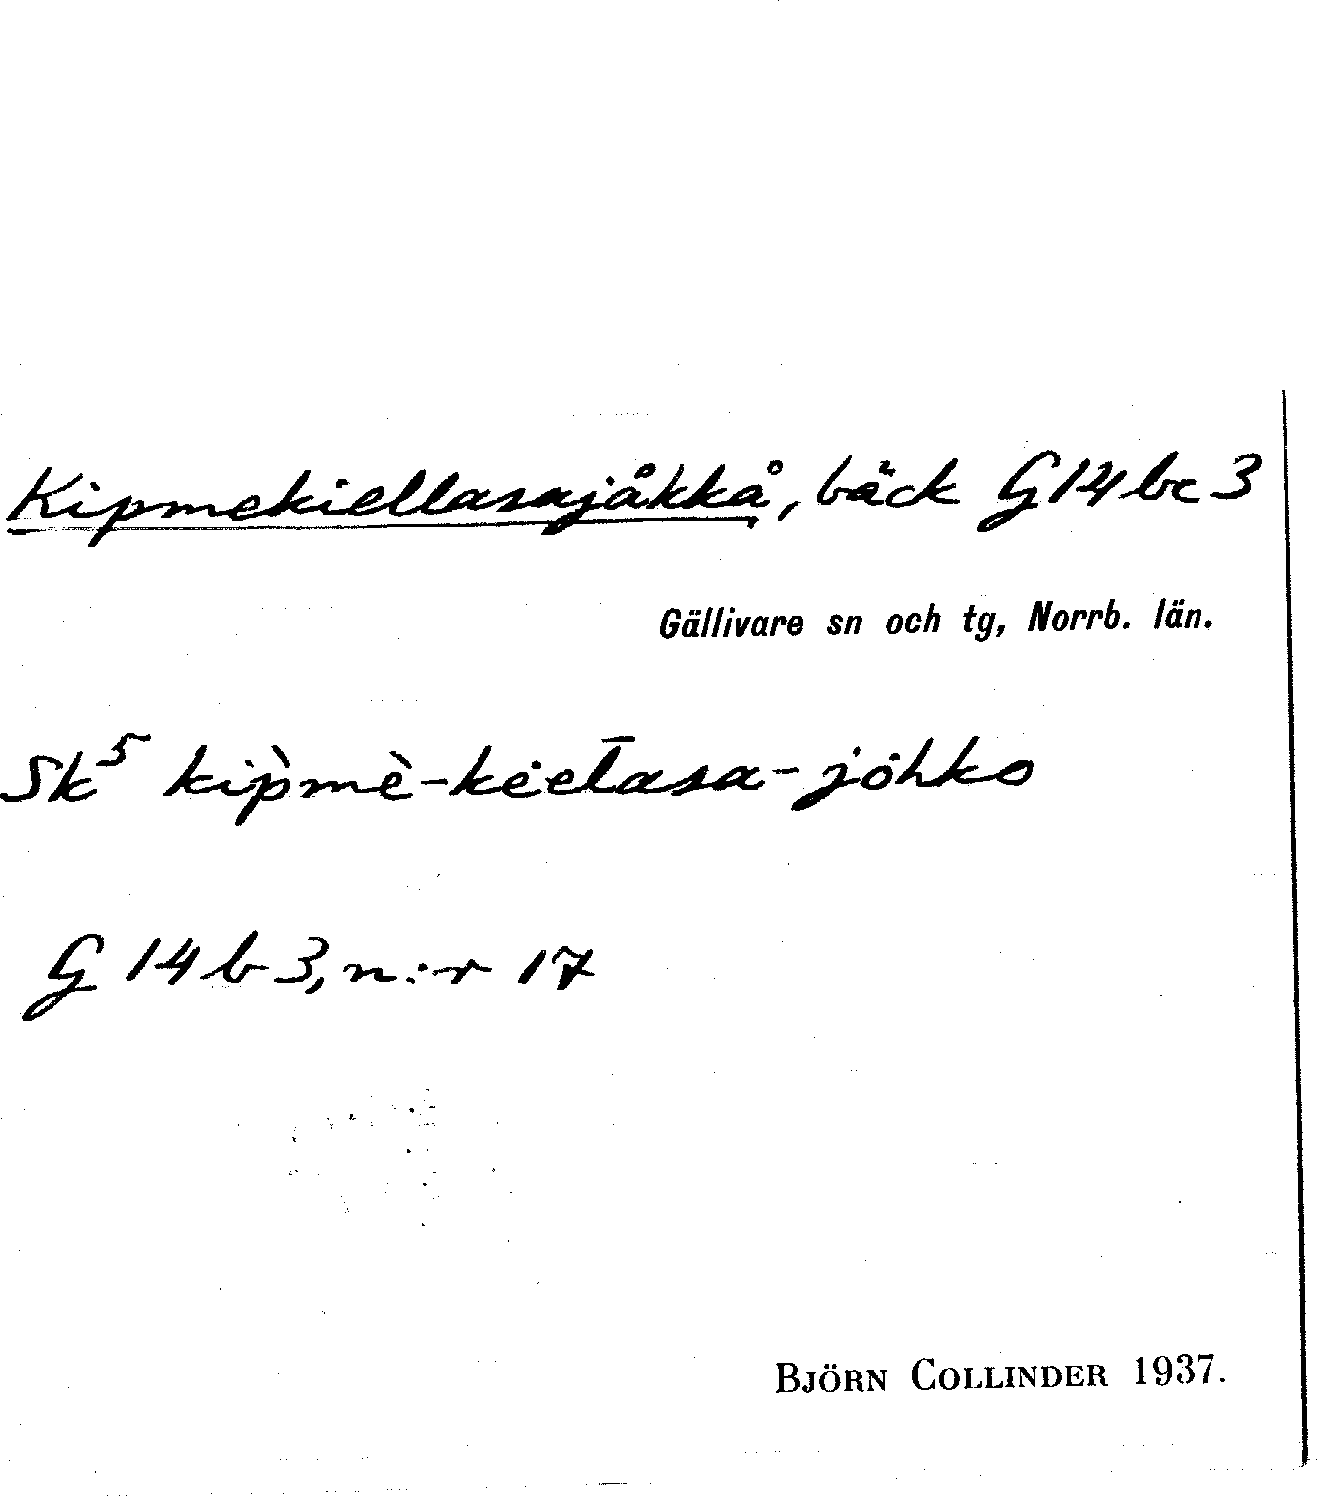 Kipmekiellasajåkkå, bäck G14bc3
Gällivare sn och tg, Norrb. län.
Sk⁵ kip̀mè-kėel̄asa-jȯhko
G 14 b 3, n:r 17
BJÖRN COLLINDER 1937.